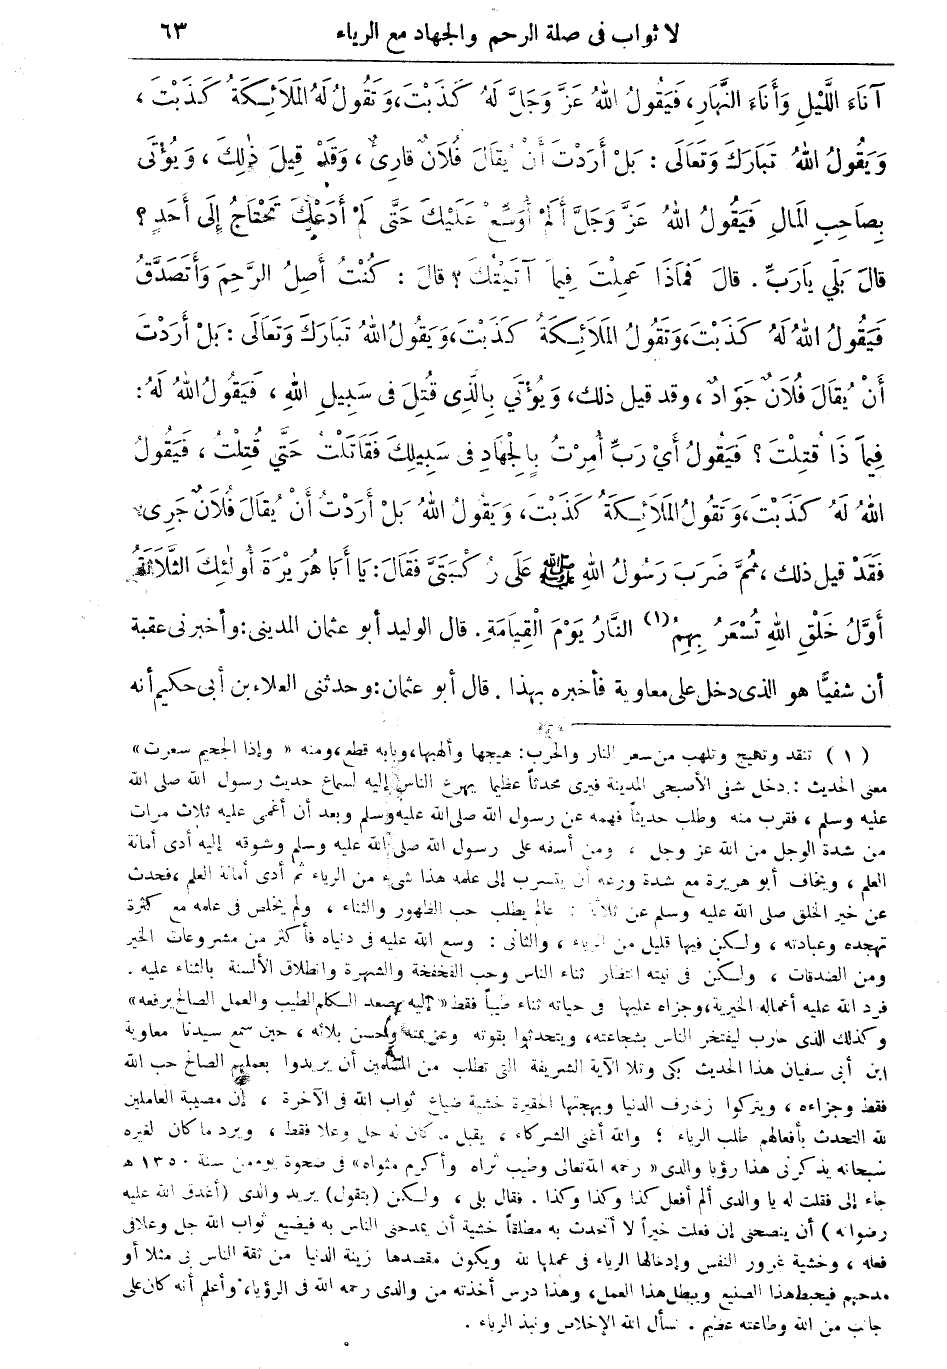 لا ثواب فى صلة الرحم والجهاد مع الرياء ٦٣
آنَاءَ اللَّيْلِ وَأَنَاءَ النَّهَارِ، فَيَقُولُ اللهُ عَزَّ وَجَلَّ لَهُ كَذَبْتَ، وَتَقُولُ لَهُ الْمَلَائِكَةُ كَذَبْتَ،
وَيَقُولُ اللهُ تَبَارَكَ وَتَعَالَى: بَلْ أَرَدْتَ أَنْ يُقَالَ فُلَانٌ قَارِئٌ، وَقَدْ قِيلَ ذٰلِكَ، وَيُؤْتَى
بِصَاحِبِ الْمَالِ فَيَقُولُ اللهُ عَزَّ وَجَلَّ أَلَمْ أُوَسِّعْ عَلَيْكَ حَتَّى لَمْ أَدَعْكَ تَحْتَاجُ إِلَى أَحَدٍ؟
قَالَ بَلَى يَارَبِّ. قَالَ فَمَاذَا عَمِلْتَ فِيمَا آتَيْتُكَ؟ قَالَ: كُنْتُ أَصِلُ الرَّحِمَ وَأَتَصَدَّقُ
فَيَقُولُ اللهُ لَهُ كَذَبْتَ، وَتَقُولُ الْمَلَائِكَةُ كَذَبْتَ، وَيَقُولُ اللهُ تَبَارَكَ وَتَعَالَى: بَلْ أَرَدْتَ
أَنْ يُقَالَ فُلَانٌ جَوَادٌ، وقد قيل ذلك، وَيُؤْتَى بِالَّذِى قُتِلَ فى سَبِيلِ اللهِ، فَيَقُولُ اللهُ لَهُ:
فِيمَا ذَا قُتِلْتَ؟ فَيَقُولُ أَيْ رَبِّ أُمِرْتُ بِالْجِهَادِ فى سَبِيلِكَ فَقَاتَلْتُ حَتَّى قُتِلْتُ، فَيَقُولُ
اللهُ لَهُ كَذَبْتَ، وَتَقُولُ الْمَلَائِكَةُ كَذَبْتَ، وَيَقُولُ اللهُ بَلْ أَرَدْتَ أَنْ يُقَالَ فُلَانٌ جَرِىءٌ
فَقَدْ قيل ذلك، ثُمَّ ضَرَبَ رَسُولُ اللهِ ﷺ عَلَى رُكْبَتَيَّ فَقَالَ: يَا أَبَا هُرَيْرَةَ أُولٰئِكَ الثَّلَاثَةُ
أَوَّلُ خَلْقِ اللهِ تُسْعَرُ بِهِمُ (١) النَّارُ يَوْمَ الْقِيَامَةِ. قال الوليد أبو عثمان المدينى: وأخبرنى عقبة
أن شفيًّا هو الذى دخل على معاوية فأخبره بهذا. قال أبو عثمان: وحدثنى العلاء بن أبى حكيم أنه
(١) تتقد وتهيج وتلهب من سعر النار والحرب: هيجها وألهبها، وبابه قطع، ومنه « وإذا الجحيم سعرت »
معنى الحديث: دخل شفى الأصبحى المدينة فيرى محدثاً عظيما يهرع الناس إليه لسماع حديث رسول الله صلى الله
عليه وسلم، فقرب منه وطلب حديثاً فهمه عن رسول الله صلى الله عليه وسلم وبعد أن أغمى عليه ثلاث مرات
من شدة الوجل من الله عز وجل، ومن أسفه على رسول الله صلى الله عليه وسلم وشوقه إليه أدى أمانة
العلم، ويخاف أبو هريرة مع شدة ورعه أن يتسرب إلى علمه هذا شىء من الرياء ثم أدى أمانة العلم، فحدث
عن خير الخلق صلى الله عليه وسلم عن ثلاثة: عالم يطلب حب الظهور والثناء، ولم يخلص فى علمه مع كثرة
تهجده وعبادته، ولكن فيها قليل من الرياء، والثانى: وسع الله عليه فى دنياه فأكثر من مشروعات الخير
ومن الصدقات، ولكن فى نيته انتظار ثناء الناس وحب الفخفخة والشهرة وانطلاق الألسنة بالثناء عليه.
فرد الله عليه أعماله الخيرية، وجزاء عليها فى حياته ثناء طيباً فقط « إليه يصعد الكلم الطيب والعمل الصالح يرفعه »
وكذلك الذى حارب ليفتخر الناس بشجاعته، ويتحدثوا بقوته وعزيمته وحسن بلائه، حين سمع سيدنا معاوية
ابن أبى سفيان هذا الحديث بكى وتلا الآية الشريفة التى تطلب من المسلمين أن يريدوا بعملهم الصالح حب الله
فقط وجزاءه، ويتركوا زخرف الدنيا وبهجتها الحقيرة خشية ضياع ثواب الله فى الآخرة، إن مصيبة العاملين
لله التحدث بأفعالهم طلب الرياء؛ والله أغنى الشركاء، يقبل ما كان له جل وعلا فقط، ويرد ما كان لغيره
سبحانه يذكرنى هذا رؤيا والدى « رحمه الله تعالى وطيب ثراه وأكرم مثواه » فى ضحوة يوم من سنة ١٣٥٠ ه
جاء إلى فقلت له يا والدى ألم أفعل كذا وكذا وكذا. فقال بلى، ولكن (بتقول) يريد والدى (أغدق الله عليه
رضوانه) أن ينصحنى إن فعلت خيراً لا أتحدث به مطلقاً خشية أن يمدحنى الناس به فيضيع ثواب الله جل وعلا فى
فعله، وخشية غرور النفس وإدخالها الرياء فى عملها لله ويكون مقصدها زينة الدنيا من ثقة الناس بى مثلا أو
مدحهم فيحبط هذا الصنيع ويبطل هذا العمل، وهذا درس أخذته من والدى رحمه الله فى الرؤيا، وأعلم أنه كان على
جانب من الله وطاعته عظيم. نسأل الله الإخلاص ونبذ الرياء.